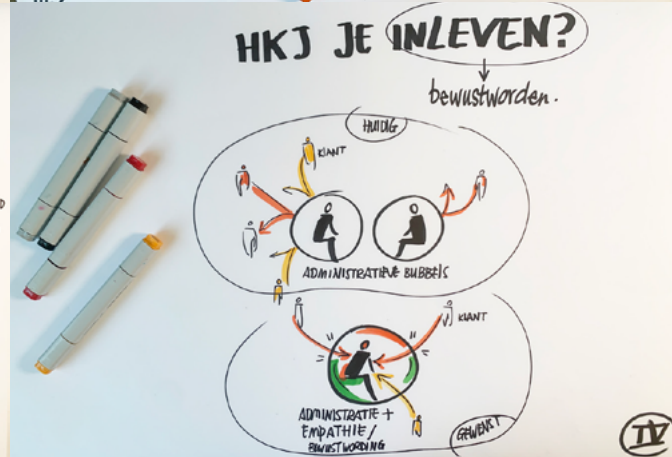 HKJ JE INLEVEN?
bewustworden.
HUIDIG
KLANT
ADMINISTRATIEVE BUBBELS
KLANT
ADMINISTRATIE +
EMPATHIE /
BEWUSTWORDING
GEWENST